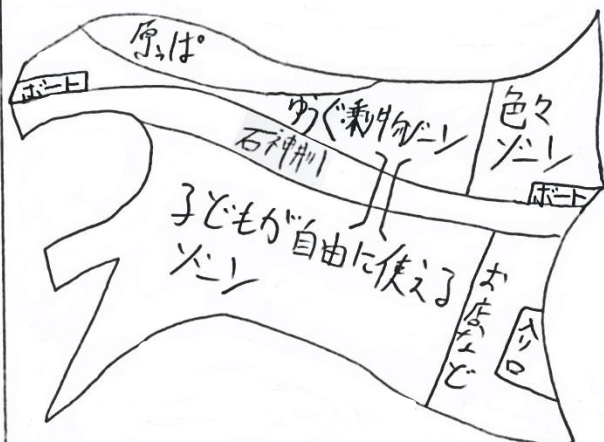 原っぱ
ボート
ゆうぐ・乗り物ゾーン
色々
ゾーン
石神井川
ボート
子どもが自由に使える
ゾーン
お店など
入り口